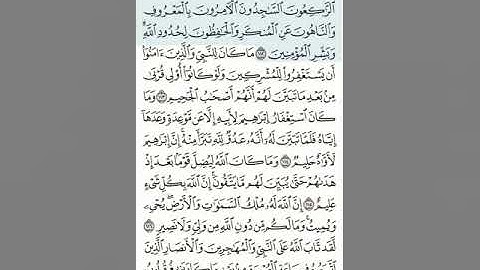 ٱلرَّٰكِعُونَ ٱلسَّٰجِدُونَ ٱلْءَامِرُونَ بِٱلْمَعْرُوفِ
وَٱلنَّاهُونَ عَنِ ٱلْمُنكَرِ وَٱلْحَٰفِظُونَ لِحُدُودِ ٱللَّهِ ۗ
وَبَشِّرِ ٱلْمُؤْمِنِينَ ١١٢ مَا كَانَ لِلنَّبِىِّ وَٱلَّذِينَ ءَامَنُوٓا۟
أَن يَسْتَغْفِرُوا۟ لِلْمُشْرِكِينَ وَلَوْ كَانُوٓا۟ أُو۟لِى قُرْبَىٰ
مِنۢ بَعْدِ مَا تَبَيَّنَ لَهُمْ أَنَّهُمْ أَصْحَٰبُ ٱلْجَحِيمِ ١١٣ وَمَا
كَانَ ٱسْتِغْفَارُ إِبْرَٰهِيمَ لِأَبِيهِ إِلَّا عَن مَّوْعِدَةٍ وَعَدَهَآ
إِيَّاهُ فَلَمَّا تَبَيَّنَ لَهُۥٓ أَنَّهُۥ عَدُوٌّ لِّلَّهِ تَبَرَّأَ مِنْهُ ۚ إِنَّ إِبْرَٰهِيمَ
لَأَوَّٰهٌ حَلِيمٌ ١١٤ وَمَا كَانَ ٱللَّهُ لِيُضِلَّ قَوْمًۢا بَعْدَ إِذْ
هَدَىٰهُمْ حَتَّىٰ يُبَيِّنَ لَهُم مَّا يَتَّقُونَ ۚ إِنَّ ٱللَّهَ بِكُلِّ شَىْءٍ
عَلِيمٌ ١١٥ إِنَّ ٱللَّهَ لَهُۥ مُلْكُ ٱلسَّمَٰوَٰتِ وَٱلْأَرْضِ ۖ يُحْىِۦ
وَيُمِيتُ ۚ وَمَا لَكُم مِّن دُونِ ٱللَّهِ مِن وَلِىٍّ وَلَا نَصِيرٍ ١١٦
لَّقَد تَّابَ ٱللَّهُ عَلَى ٱلنَّبِىِّ وَٱلْمُهَٰجِرِينَ وَٱلْأَنصَارِ ٱلَّذِينَ